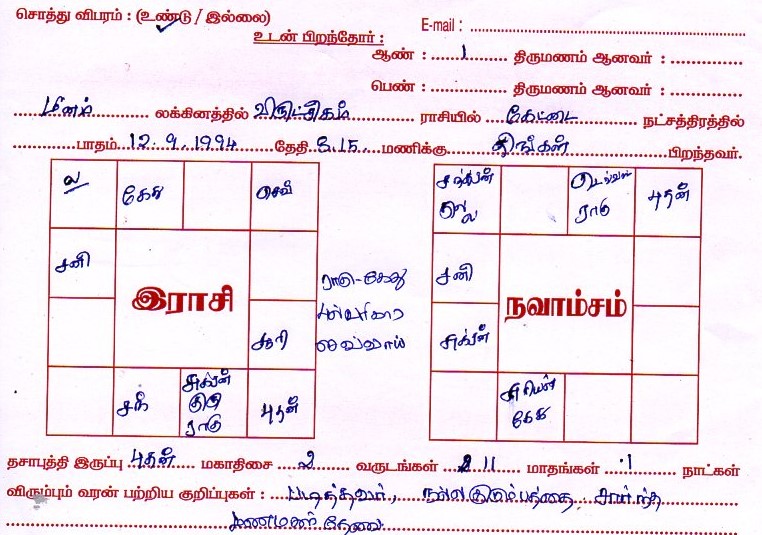 சொத்து விபரம் : (உண்டு / இல்லை) E-mail :
உடன் பிறந்தோர் :
ஆண் : 1 திருமணம் ஆனவர் :
பெண் : திருமணம் ஆனவர் :
மீனம் லக்கினத்தில் விருட்சிகம் ராசியில் கேட்டை நட்சத்திரத்தில்
பாதம் 12.9.1994 தேதி 8.15 மணிக்கு திங்கள் பிறந்தவர்.
ல கேது செவ்
சனி
இராசி
சூரி
சந் சுக்ரன் குரு ராகு புதன்
ராகு-கேது
பரிகார
செவ்வாய்
சந்திரன் குரு செவ்வாய் ராகு புதன்
சனி
நவாம்சம்
சுக்ரன்
சூரியன் கேது
தசாபுத்தி இருப்பு புதன் மகாதிசை 2 வருடங்கள் 11 மாதங்கள் 1 நாட்கள்
விரும்பும் வரன் பற்றிய குறிப்புகள் : படித்தவர், நல்ல குடும்பத்தை சார்ந்த
மணமகன் தேவை